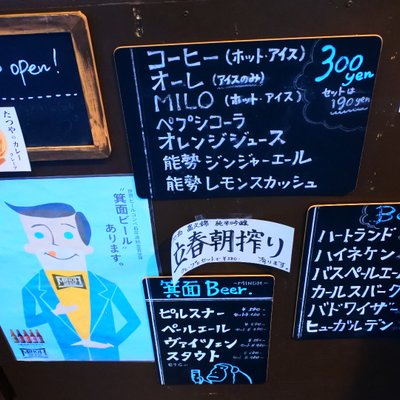 open!
たつやのカレー
コーヒー(ホット・アイス)
オーレ(アイスのみ)
MILO(ホット・アイス)
ペプシコーラ
オレンジジュース
能勢 ジンジャーエール
能勢 レモンスカッシュ
300
yen
セットは
190yen
"箕面ビール"
あります。
純米吟醸
立春朝搾り
あります。
箕面Beer.
-MINOH-
ピルスナー
ペールエール
ヴァイツェン
スタウト
ハートランド
ハイネケン
バスペールエー
カールスバーグ
バドワイザー
ヒューガルデン